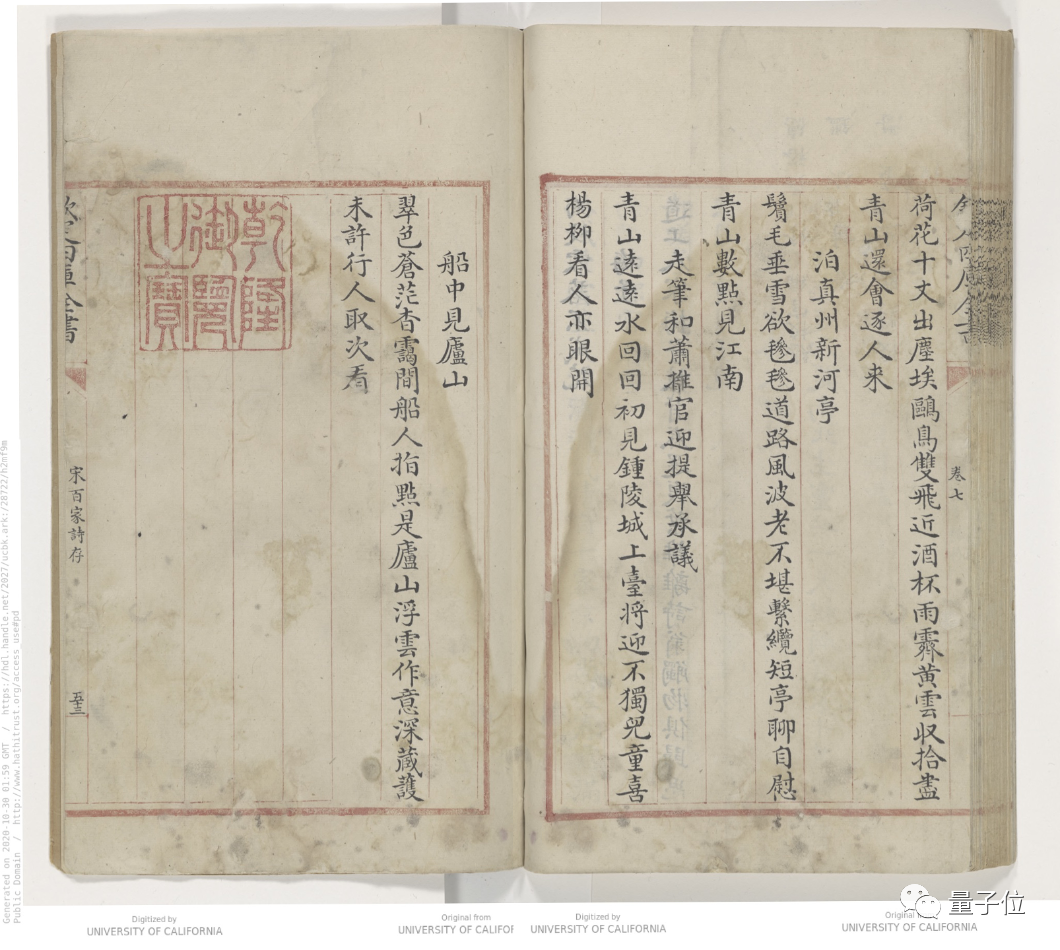 荷花十丈出塵埃鷗鳥雙飛近酒杯雨霽黄雲収拾盡
青山還會逐人来
泊真州新河亭
鬢毛垂雪欲毿毿道路風波老不堪繫纜短亭聊自慰
青山數點見江南
走筆和蕭推官迎提舉承議
青山遠遠水回回初見鍾陵城上臺将迎不獨兒童喜
楊柳看人亦眼開
卷七
船中見廬山
翠色蒼茫杳靄間船人指點是廬山浮雲作意深藏護
未許行人取次看
乾隆御覽之寶
宋百家詩存
五十三
Generated on 2020-10-30 01:59 GMT / https://hdl.handle.net/2027/ucbk.ark:/28722/h2mf9m
Public Domain / http://www.hathitrust.org/access_use#pd
Digitized by
UNIVERSITY OF CALIFORNIA
Original from
UNIVERSITY OF CALIF
Digitized by
UNIVERSITY OF CALIFORNIA
Original
UNIVERSITY OF CALIFORNIA
量子位